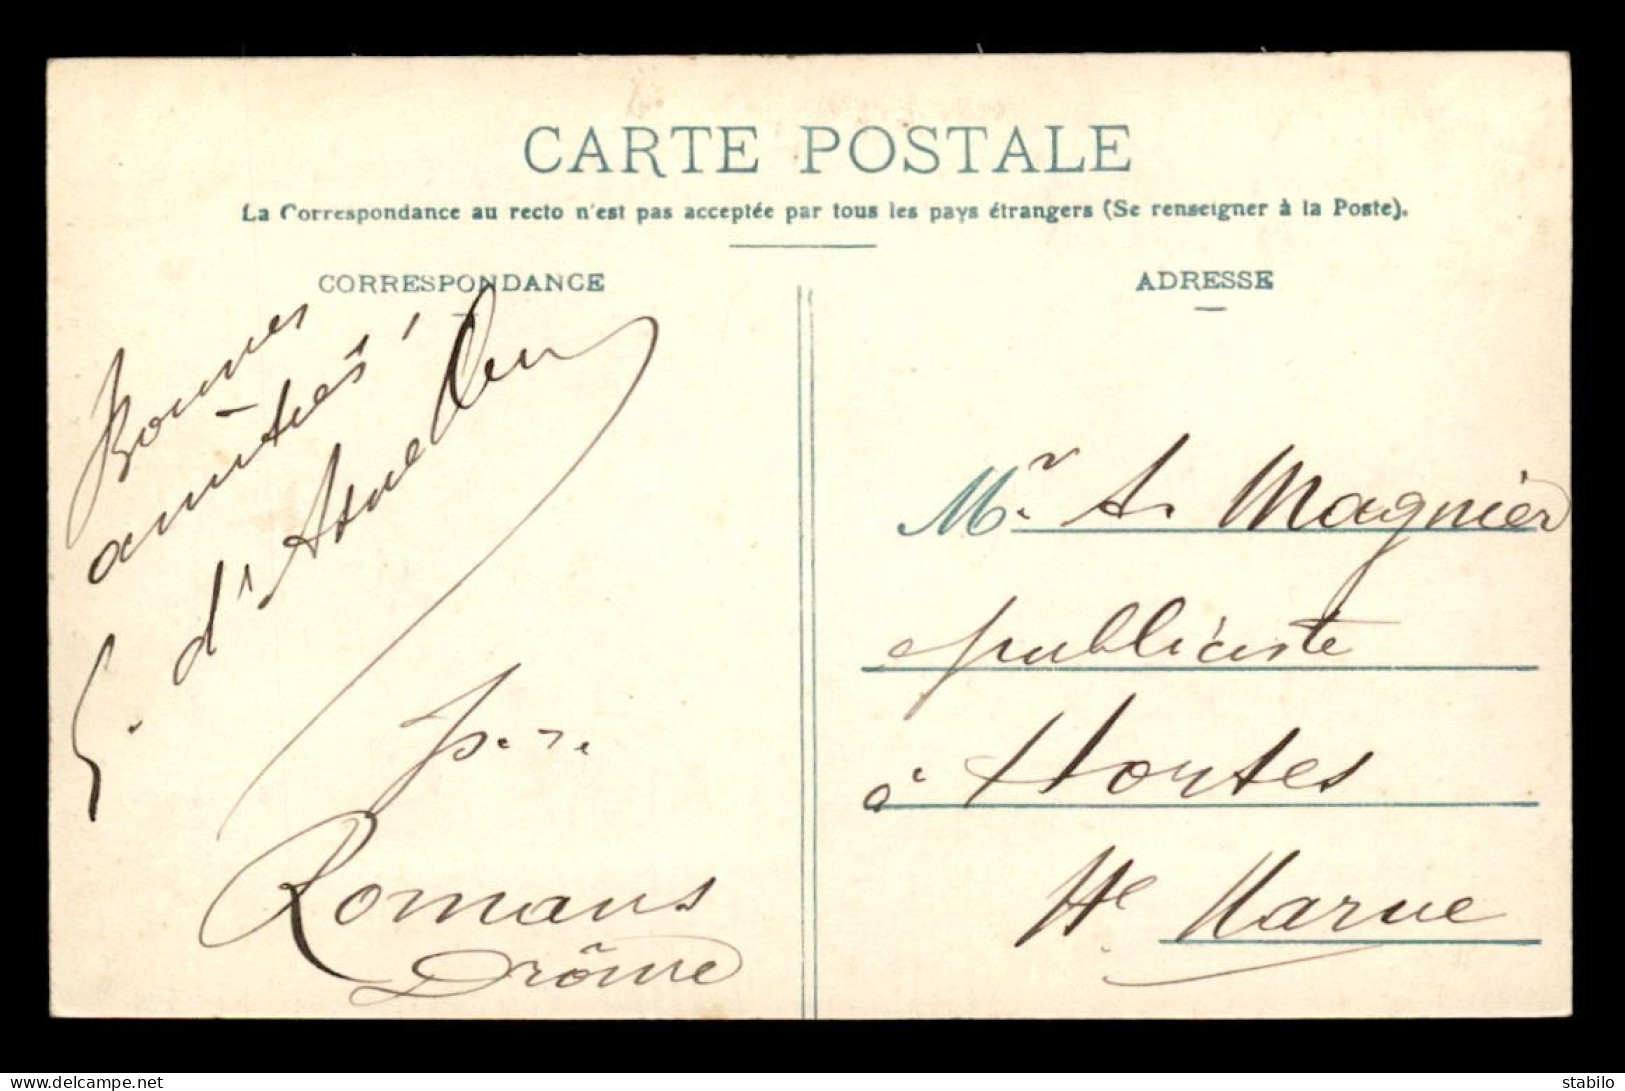 CARTE POSTALE
La Correspondance au recto n'est pas acceptée par tous les pays étrangers (Se renseigner à la Poste).
CORRESPONDANCE
Bonnes
amitiés
G. d'
Romans
Drôme
ADRESSE
Mr. A. Magnier
publiciste
à Hortes
Hte Marne
delcampe.net stabilo